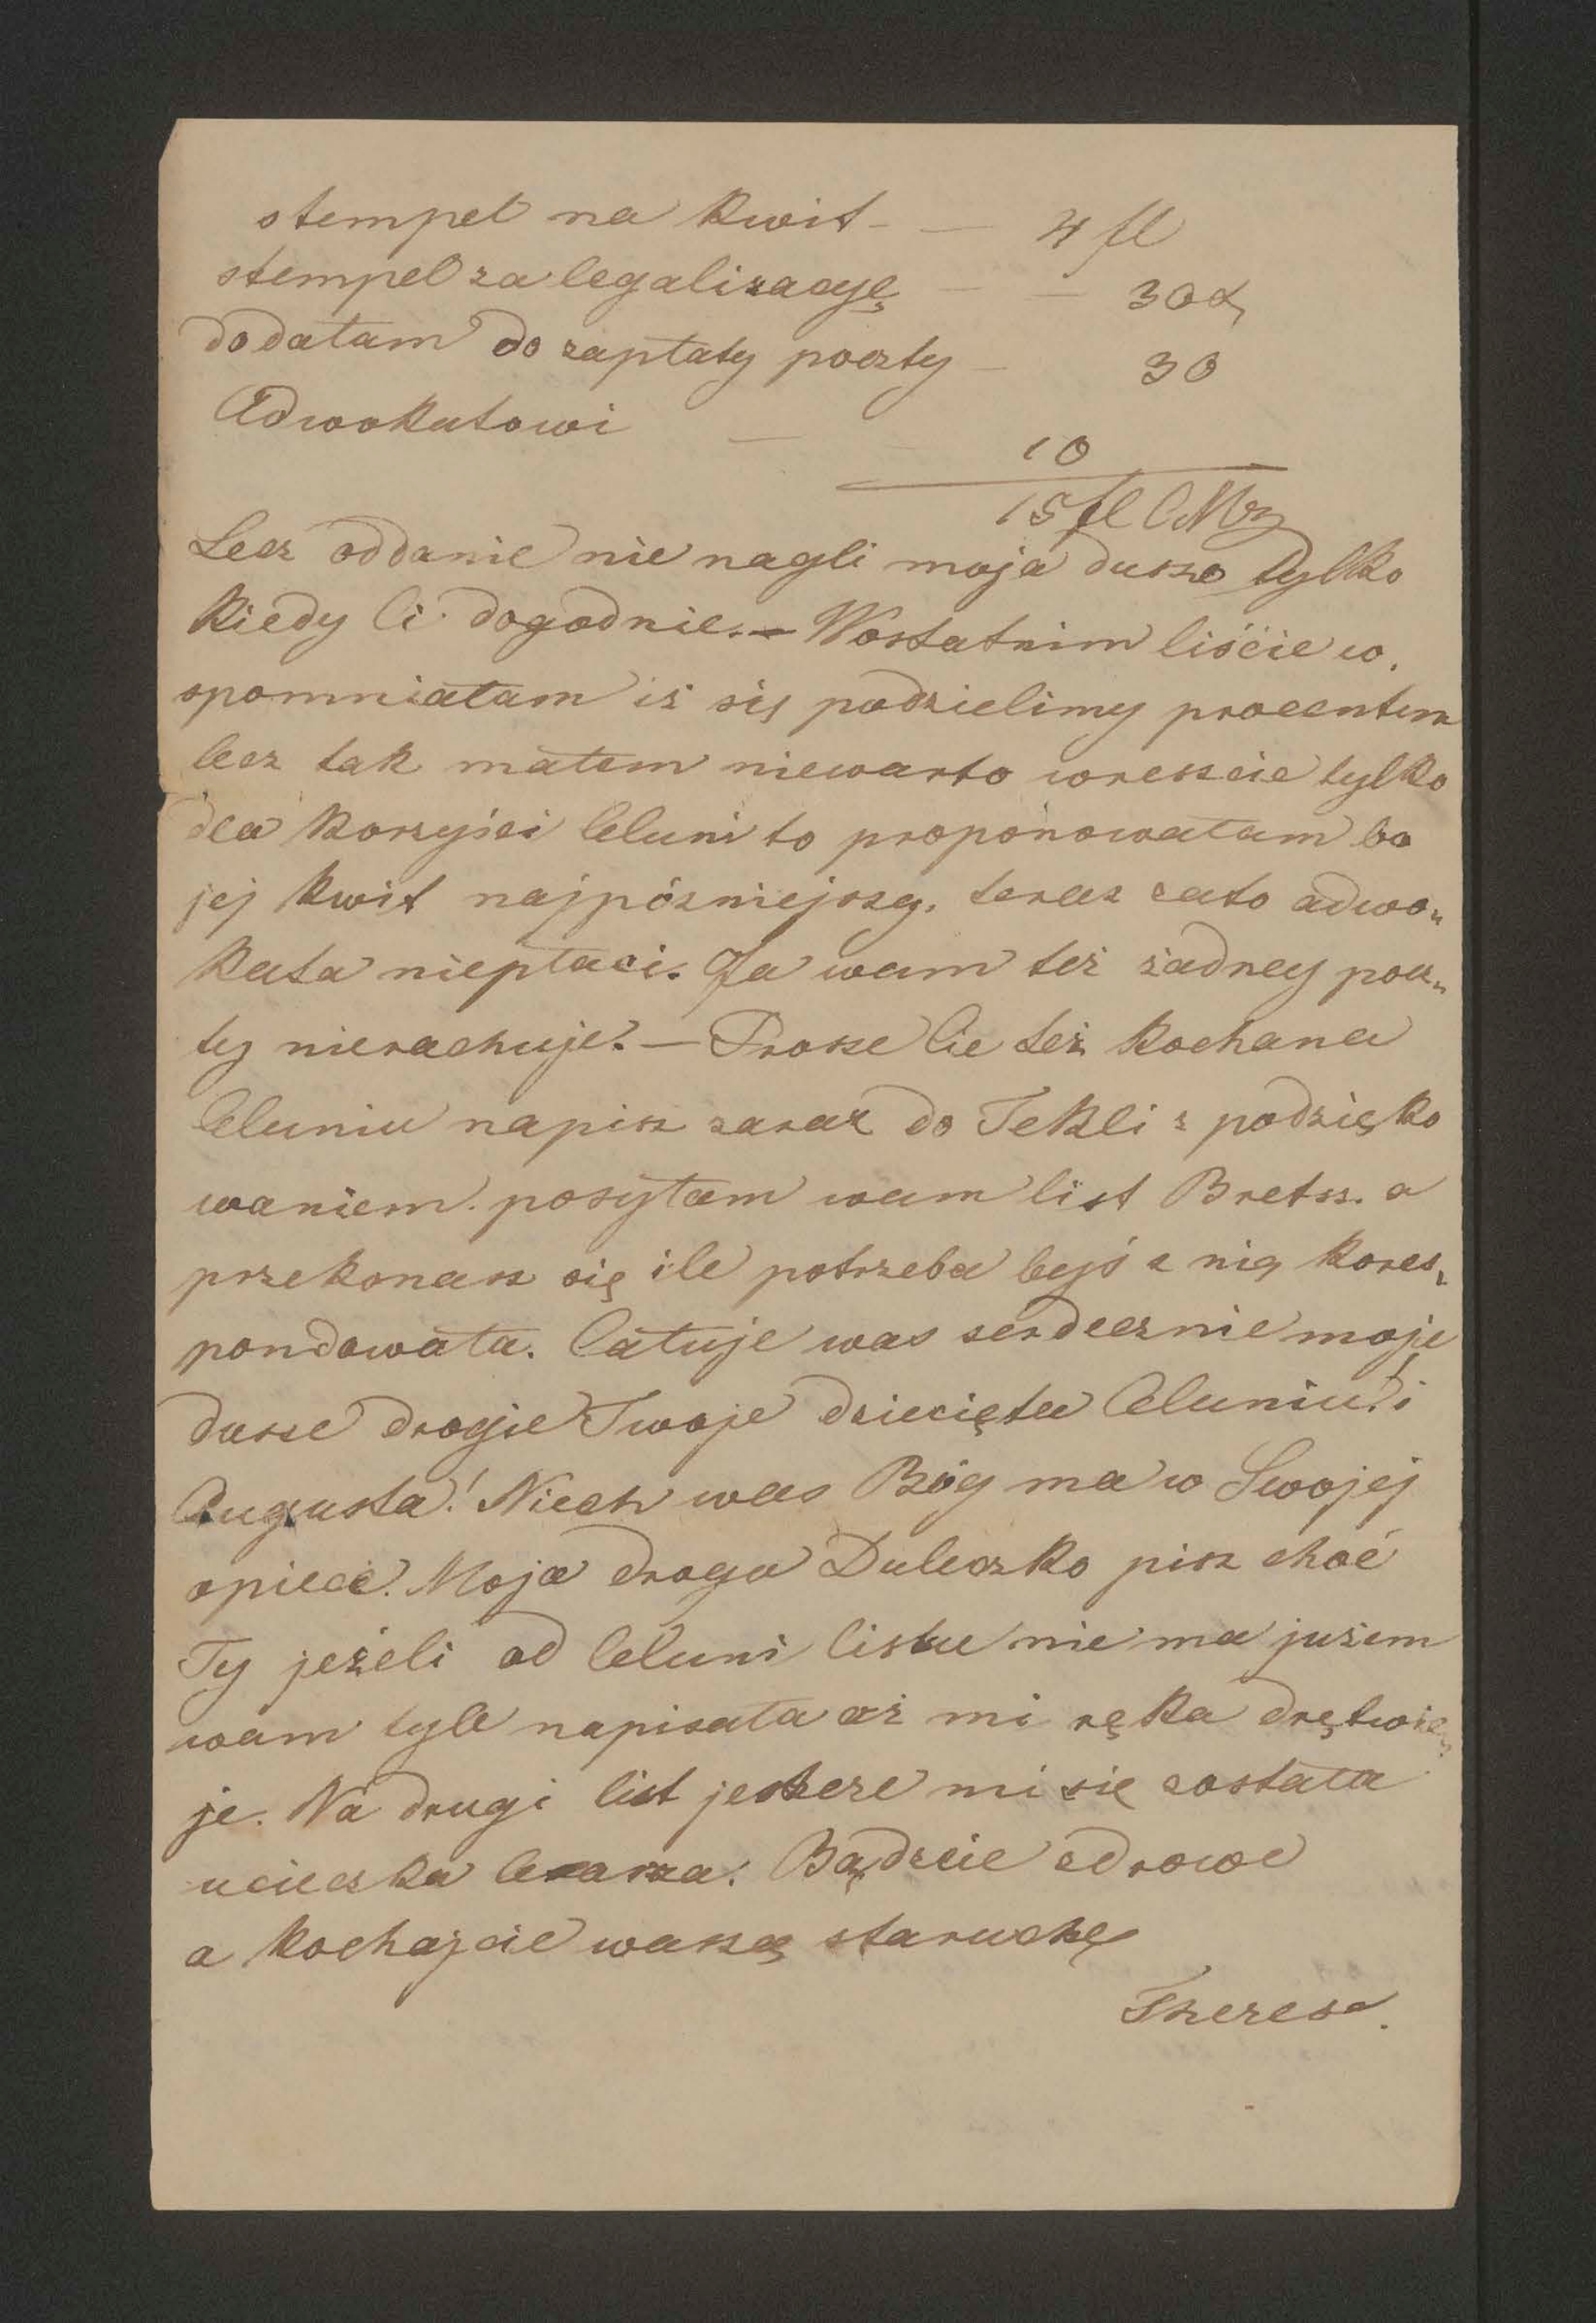 stempel na kwit - — 4 fl
stempel za legalizacyę — — 30 x
dodałam do zapłaty poczty — 30
Adwokatowi — 10
15 fl CMz
Lecz oddanie nie nagli moja duszo tylko
kiedy Ci dogodnie. — Wostatnim liście w,
spomniałam iż się podzielimy procentem
lecz tak małem niewarto wreszcie tylko
dla korzyści Celuni to proponowałam bo
jej kwit najpózniejszy. teraz zato adwo„
kata niepłaci. Ja wam też żadney pocz„
ty nierachuje. — Prosze Cie też kochana
Celuniu napisz zaraz do Tekli z podzięko
waniem. posyłam wam list Bretsz. a
przekonasz się ile potrzeba było z nią kores„
pondowała. Całuje was serdecznie moje
dusze drogie Twoje dziecięta Celuniu! i
Augusta! Niech was Bóg ma w Swojej
opiece. Moja droga Duleczko pisz choć
Ty jeżeli od Celuni listu nie ma jużem
wam tyle napisała aż mi ręka drętwie„
je. Na drugi list jeszcze mi się została
ucieczka Bądzcie zdrowe
a kochajcie waszę staruchę
Theresa.